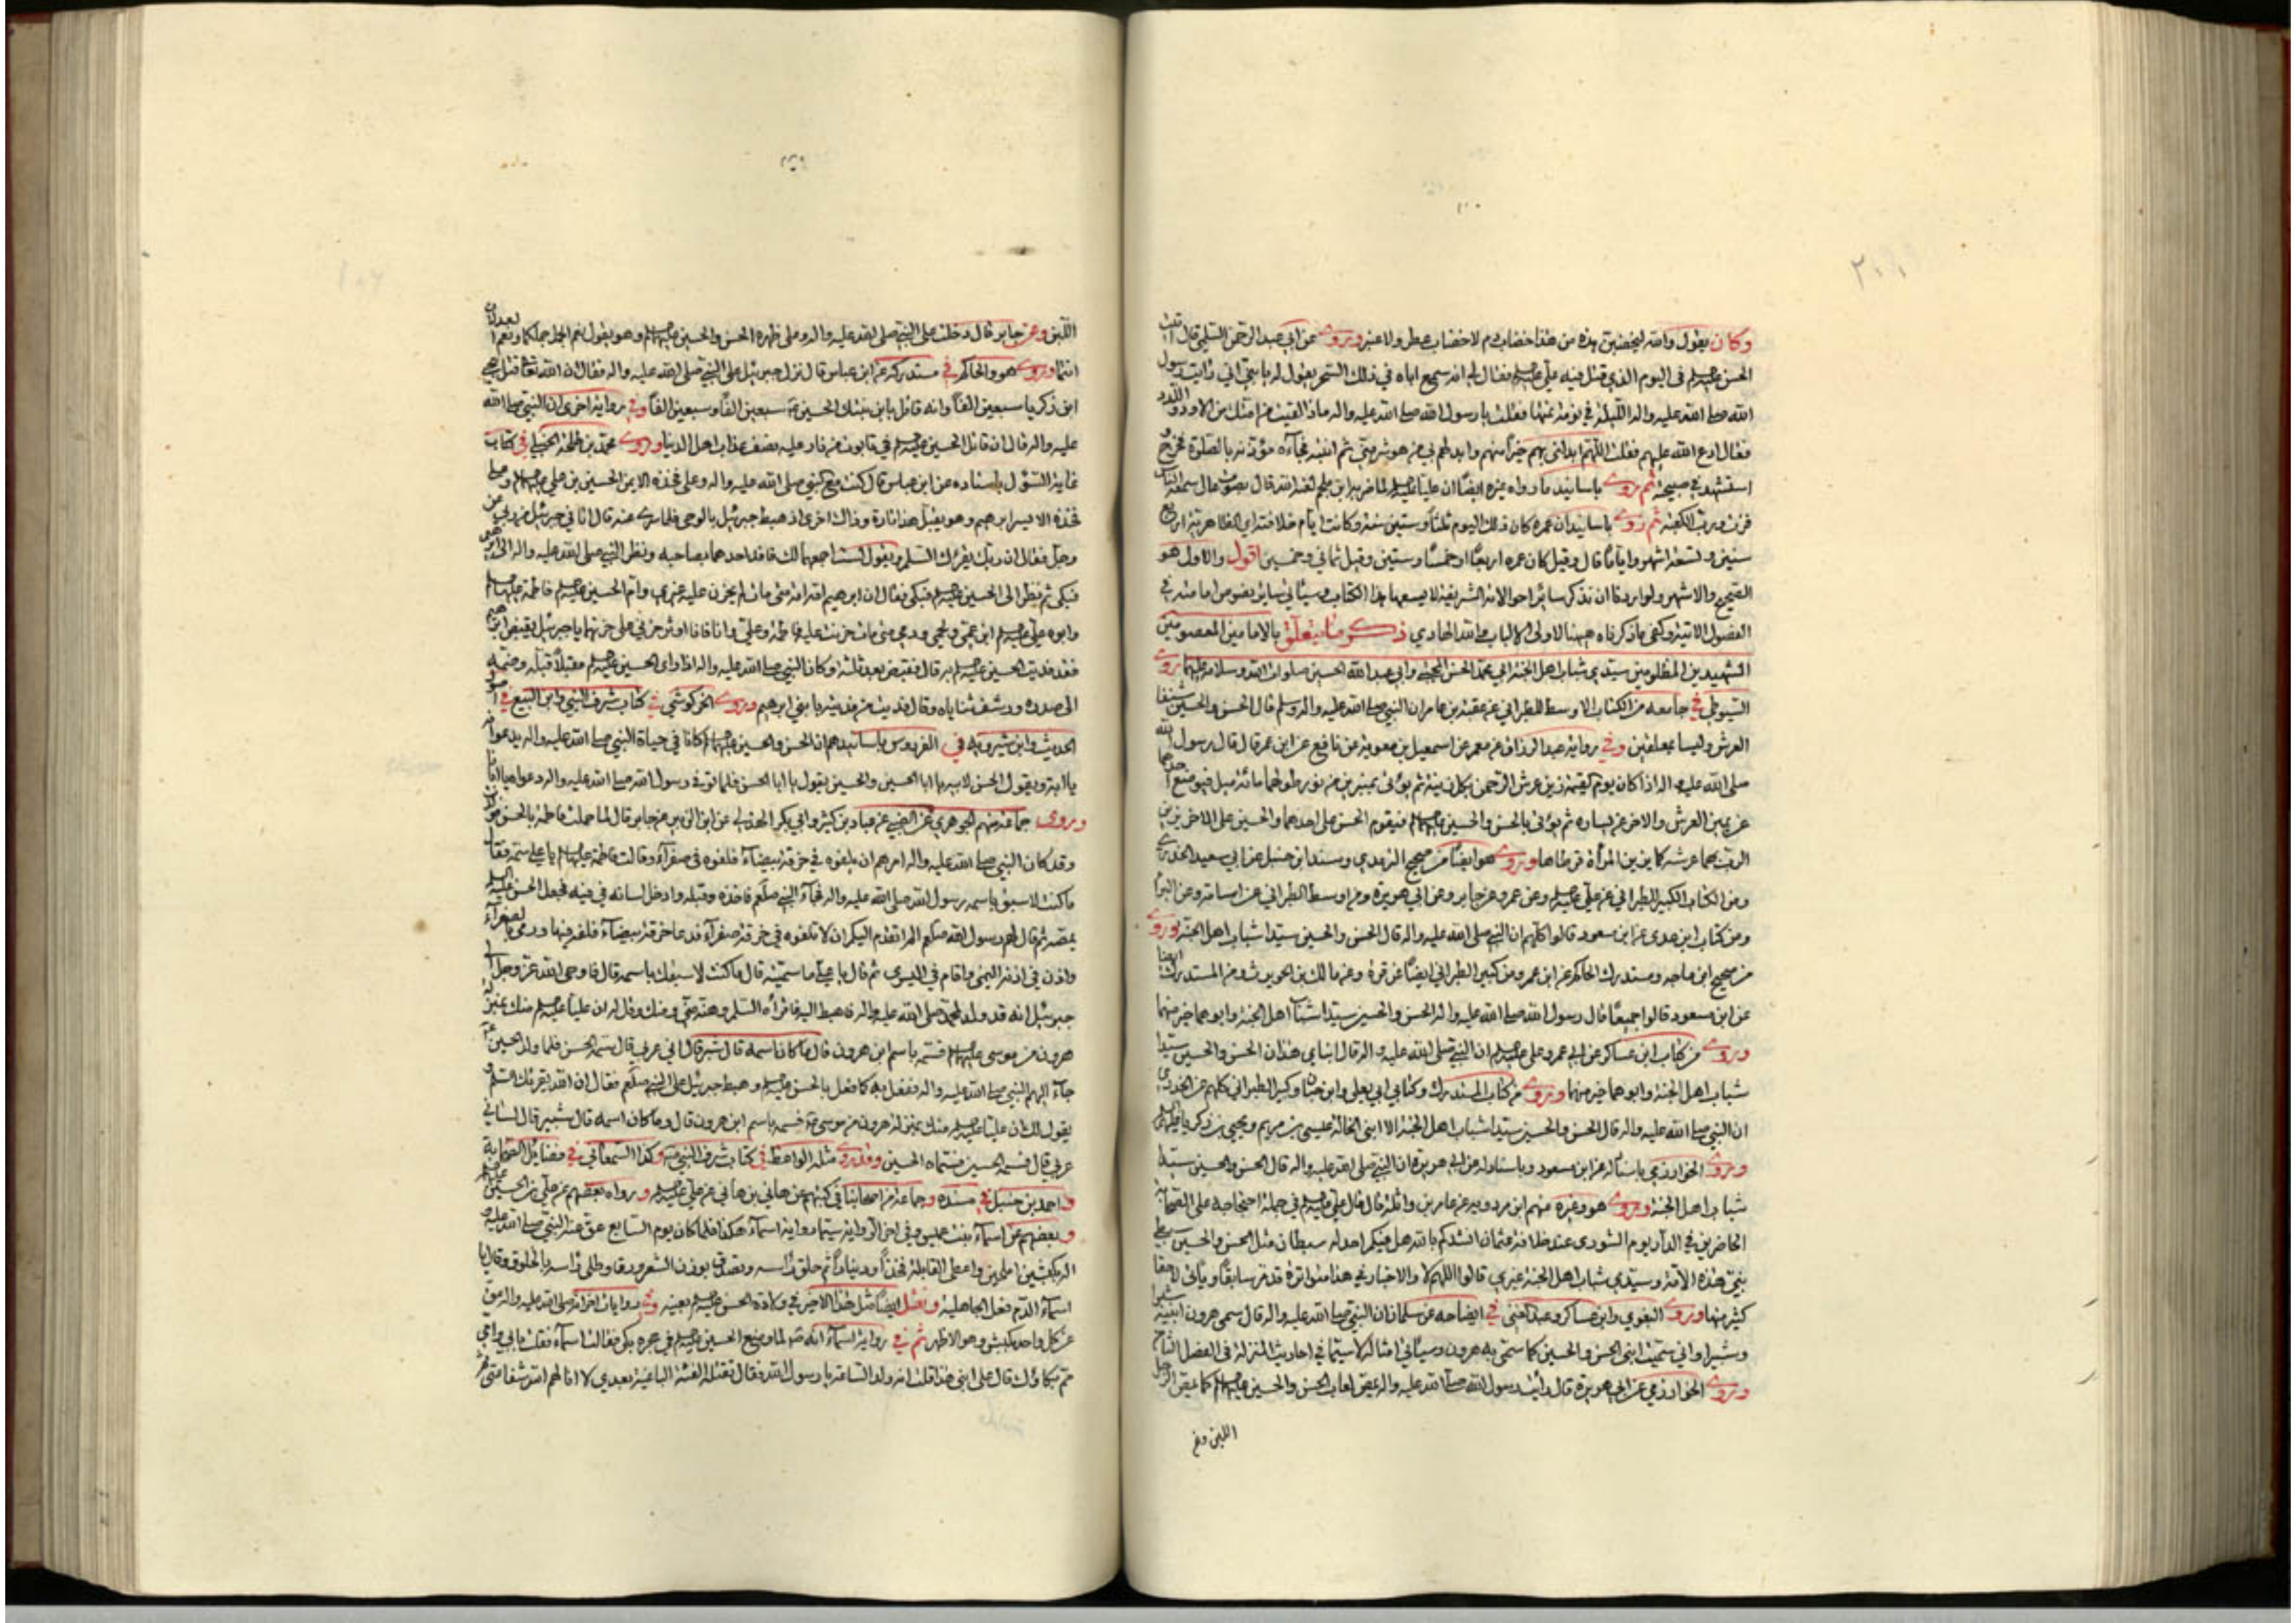 وكان يقول والله ليخضبن هذه من هذا خضاب دم لا خضاب عطر ولا عنبر وروى عن ابي عبد الرحمن السلمي قال
الحسن عليه السلم في اليوم الذي قتل فيه علي عليه السلم فقال له انه سمع اباه في ذلك السحر يقول له يا بني اني رايت رسول
الله صلى الله عليه واله الليلة في نومة نمتها فقلت يا رسول الله صلى الله عليه واله ماذا لقيت من امتك من الاود واللدد
فقال ادع الله عليهم فقلت اللهم ابدلني بهم خيرا منهم وابدلهم بي من هو شر مني ثم انتبه فجاءه مؤذنه بالصلوة فخرج و
استشهد في صبيحته ثم روى باسانيد ما رواه غيره ايضا ان عليا عليه السلم لما ضربه ابن ملجم لعنه الله قال بصوت عال سمعه الناس
فزت ورب الكعبة ثم روى باسانيد ان عمره كان ذلك اليوم ثلثا وستين سنة وكانت ايام خلافته اي الظاهرية اربع
سنين وتسعة اشهر واياما قال وقيل كان عمره اربعا او خمسا وستين وقيل ثماني وخمسين اقول والاول هو
الصحيح والاشهر ولو اردنا ان نذكر سائر احوالاته الشريفة لا يسعها هذا الكتاب وسيأتي سائر نصوص امامته في
الفصول الاتية وكفى ما ذكرناه ههنا لاولي الالباب والله الهادي ذكر ما يتعلق بالامامين المعصومين
الشهيدين المظلومين سيدي شباب اهل الجنة ابي محمد الحسن المجتبى وابي عبد الله الحسين صلوات الله وسلامه عليهما روى
السيوطي في جامعه من الكتاب الاوسط للطبراني عن عقبة بن عامر ان النبي صلى الله عليه واله وسلم قال الحسن والحسين شنفا
العرش وليسا بمعلقين وفي رواية عبد الرزاق عن معمر عن اسمعيل بن معوية عن نافع عن ابن عمر قال قال رسول الله
صلى الله عليه واله اذا كان يوم القيمة زين عرش الرحمن بكل زينة ثم يؤتى بمنبرين من نور طولهما مائة ميل فيوضع احدهما
عن يمين العرش والاخر عن يساره ثم يؤتى بالحسن والحسين عليهما السلم فيقوم الحسن على احدهما والحسين على الاخر يزين
الرب بهما عرشه كما يزين المرأة قرطاها وروى هو ايضا من صحيح الترمذي ومسند ابن حنبل عن ابي سعيد الخدري
ومن الكتاب الكبير للطبراني عن علي عليه السلم وعن عمر وعن جابر وعن ابي هريرة ومن اوسط الطبراني عن اسامة وعن البراء
ومن كتاب ابن عدي عن ابن مسعود قالوا كلهم ان النبي صلى الله عليه واله قال الحسن والحسين سيدا شباب اهل الجنة وروى
من صحيح ابن ماجه ومستدرك الحاكم عن ابن عمر ومن كبير الطبراني ايضا عن قرة وعن مالك بن الحويرث ومن المستدرك ايضا
عن ابن مسعود قالوا جميعا قال رسول الله صلى الله عليه واله الحسن والحسين سيدا شباب اهل الجنة وابوهما خير منهما
وروى من كتاب ابن عساكر عن ابن عمر وعلي عليه السلم ان النبي صلى الله عليه واله قال ابناي هذان الحسن والحسين سيدا
شباب اهل الجنة وابوهما خير منهما وروى من كتاب المستدرك وكتابي ابي يعلى وابن حبان وكبير الطبراني كلهم عن الخدري
ان النبي صلى الله عليه واله قال الحسن والحسين سيدا شباب اهل الجنة الا ابني الخالة عيسى بن مريم ويحيى بن زكريا
وروى الخوارزمي باسناد له عن ابن مسعود وباسناد له عن ابي هريرة ان النبي صلى الله عليه واله قال الحسن والحسين سيدا
شباب اهل الجنة وروى هو وغيره منهم ابن مردويه عن عامر بن واثلة قال قال علي عليه السلم في جملة احتجاجه على الصحابة
الحاضرين في الدار يوم الشورى عند خلافة عثمان انشدكم بالله هل فيكم احد له سبطان مثل الحسن والحسين سبطي
نبي هذه الامة وسيدي شباب اهل الجنة غيري قالوا اللهم لا والاخبار في هذا متواترة قد مر سابقا ويأتي لاحقا
كثير منها وروى البغوي وابن عساكر وعبد الغني في ايضاحه عن سلمان ان النبي صلى الله عليه واله قال سمى هرون ابنيه شبرا
وشبيرا واني سميت ابني الحسن والحسين كما سمى به هرون وسيأتي امثاله لا سيما في احاديث المنزلة في الفصل
وروى الخوارزمي عن ابي هريرة قال رأيت رسول الله صلى الله عليه واله يمص لعاب الحسن والحسين عليهما السلم كما يمص الرجل
اللبن وعن
اللبن وعن جابر قال دخلت على النبي صلى الله عليه واله وعلى ظهره الحسن والحسين عليهما السلم وهو يقول نعم الجمل جملكما ونعم العدلان
انتما وروى هو والحاكم في مستدركه عن ابن عباس قال نزل جبرئيل على النبي صلى الله عليه واله فقال ان الله تعالى قتل بيحيى
ابن زكريا سبعين الفا وانه قاتل بابن بنتك الحسين سبعين الفا وسبعين الفا وفي رواية اخرى ان النبي صلى الله
عليه واله قال ان قاتل الحسين عليه السلم في تابوت من نار عليه نصف عذاب اهل الدنيا وروى محمد بن طلحة الحنبلي في كتاب
غاية السؤل باسناده عن ابن عباس قال كنت مع النبي صلى الله عليه واله وعلى فخذه الايمن الحسين بن علي عليهما السلم وعلى
فخذه الايسر ابرهيم وهو يقبل هذا تارة وذاك اخرى اذ هبط جبرئيل بالوحي فلما سري عنه قال اتاني جبرئيل من ربي عز
وجل فقال ان ربك يقرئك السلم ويقول لست اجمعهما لك فافد احدهما بصاحبه ونظر النبي صلى الله عليه واله الى ابرهيم
فبكى ثم نظر الى الحسين عليه السلم فبكى فقال ان ابرهيم امه امة متى مات لم يحزن عليه غيري وام الحسين عليه السلم فاطمة عليها السلم
وابوه علي عليه السلم ابن عمي ولحمي ودمي متى مات حزنت عليه فاطمة وعلي وانا فانا اوثر حزني على حزنهما يا جبرئيل يقبض ابرهيم
فقد فديت الحسين عليه السلم به قال فقبض بعد ثلثة وكان النبي صلى الله عليه واله اذا راى الحسين عليه السلم مقبلا قبله وضمه
الى صدره ورشف ثناياه وقال فديت من فديته بابني ابرهيم وروى الخركوشي في كتاب شرف النبي وابن البيع في اصول
الحديث وابن شيرويه في الفردوس باسانيدهم ان الحسن والحسين عليهما السلم كانا في حياة النبي صلى الله عليه واله يدعوانه
يا ابة ويقول الحسن لابيه يا ابا الحسين والحسين يقول يا ابا الحسن فلما توفي رسول الله صلى الله عليه واله دعوا عليا ابانا
وروى جماعة منهم الجوهري عن الضبي عن عباد بن كثير وابي بكر الهذلي عن ابن الزبير عن جابر قال لما حملت فاطمة بالحسن
وقد كان النبي صلى الله عليه واله امرهم ان يلفوه في خرقة بيضاء فلفوه في صفراء وقالت فاطمة عليها السلم يا علي سمه فقال
ما كنت لاسبق باسمه رسول الله صلى الله عليه واله فجاء النبي صلعم فاخذه وقبله وادخل لسانه في فيه فجعل الحسن عليه السلم
يمصه ثم قال لهم رسول الله صلعم الم اتقدم اليكم ان لا تلفوه في خرقة صفراء فدعا خرقة بيضاء فلفه فيها ورمى بالصفراء
واذن في اذنه اليمنى واقام في اليسرى ثم قال يا علي ما سميته قال ما كنت لاسبقك باسمه قال فاوحى الله عز وجل
جبرئيل انه قد ولد لمحمد صلى الله عليه واله فاهبط اليه فاقرأه السلم وهنه مني ومنك وقل له ان عليا عليه السلم منك بمنزلة
هرون من موسى فسمه باسم ابن هرون قال ما كان اسمه قال شبر قال لساني عربي قال سمه الحسن فلما ولد الحسين
جاء اليهم النبي صلى الله عليه واله ففعل به كما فعل بالحسن عليه السلم وهبط جبرئيل على النبي صلعم فقال ان الله يقرئك السلم و
يقول لك ان عليا عليه السلم منك بمنزلة هرون من موسى فسمه باسم ابن هرون قال وما كان اسمه قال شبير قال لساني
عربي قال فسمه الحسين فسماه الحسين وقد روى مثله الواعظ في كتاب شرف النبي وكذا السمعاني في فضايل الصحابة
واحمد بن حنبل في مسنده وجماعة من اصحابنا في كتبهم عن هاني بن هاني عن علي عليه السلم ورواه بعضهم عن علي بن الحسين
وبعضهم عن اسماء بنت عميس وفي اخر الرواية سيما رواية اسماء هكذا فلما كان يوم السابع عق عنه النبي صلى الله عليه و
اله بكبشين املحين واعطى القابلة فخذا ودينارا ثم حلق راسه وتصدق بوزن الشعر ورقا وطلى راسه بالخلوق وقال يا
اسماء الدم فعل الجاهلية ونقل ايضا مثل هذا الاخير في ولادة الحسن عليه السلم بعينه وفي روايات اخر انه صلى الله عليه واله عق
عن كل واحد بكبش وهو الاظهر ثم في رواية اسماء انه لما وضع الحسين عليه السلم في حجره بكى فقالت اسماء فقلت بابي وامي
مم بكاؤك قال على ابني هذا قلت انه ولد الساعة يا رسول الله فقال تقتله الفئة الباغية بعدي لا انالهم الله شفاعتي